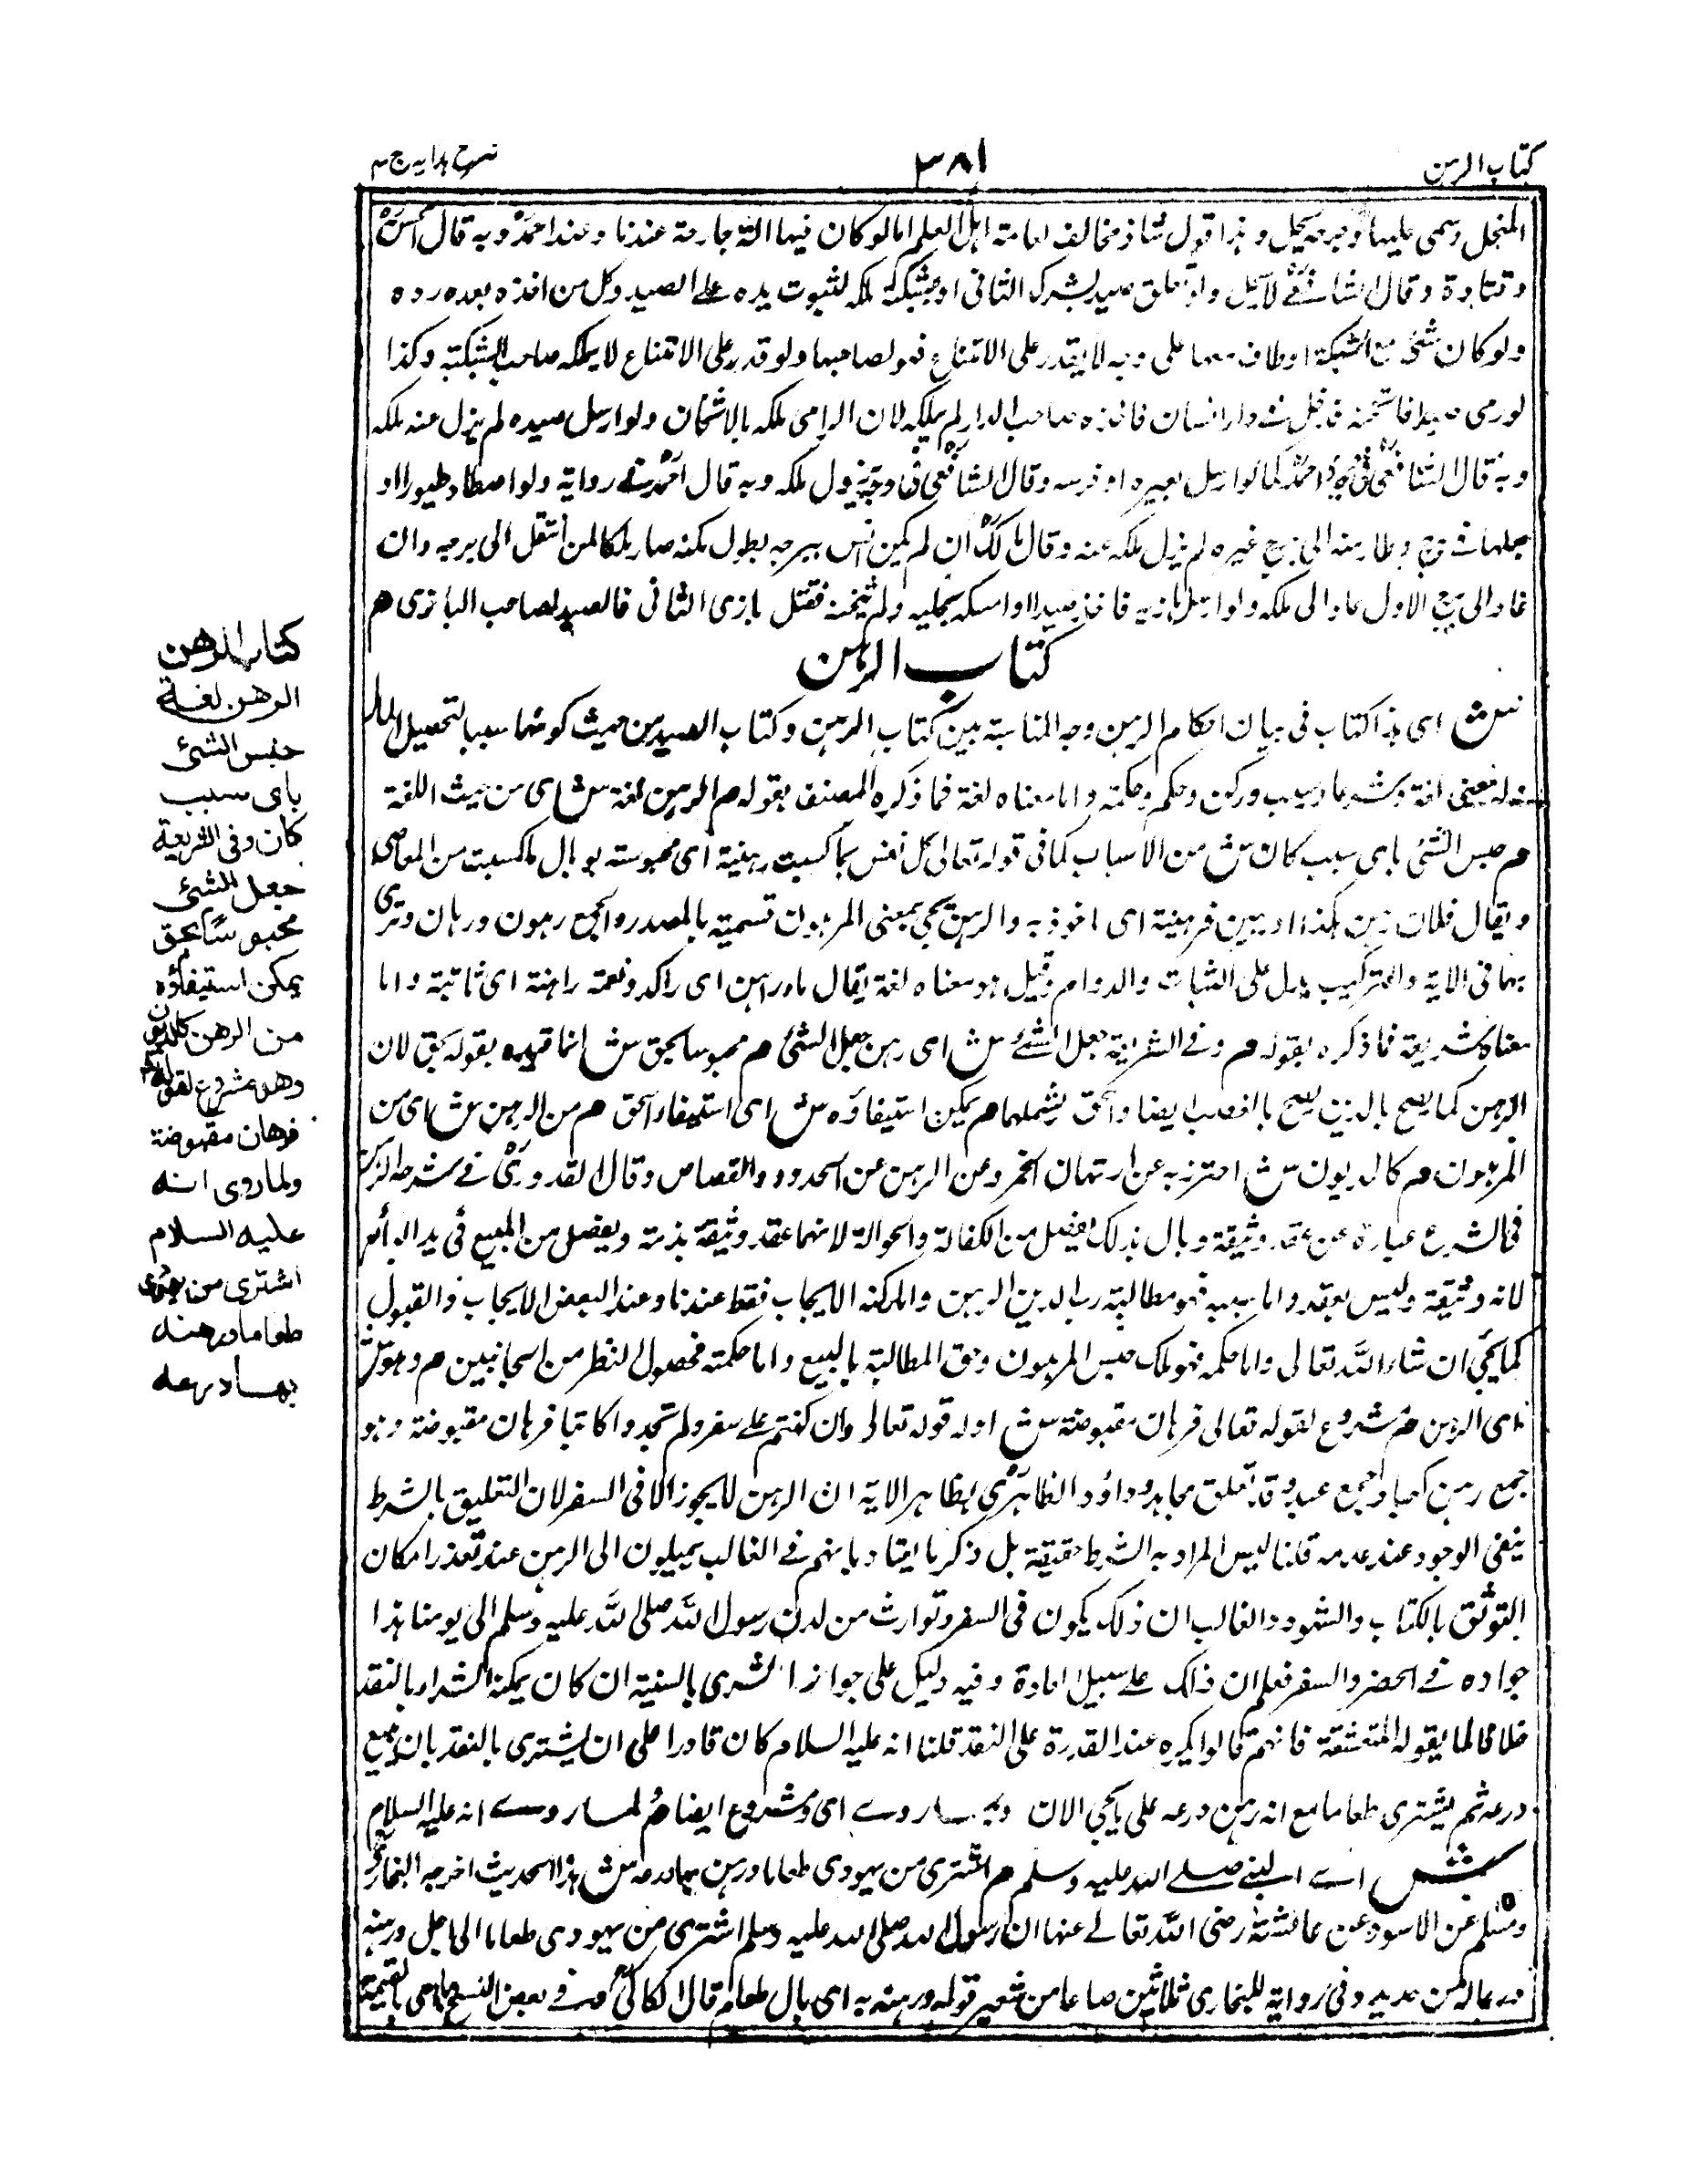 كتاب الرهن
٣٨١
شرح هدايه ج ٣
المنجل وسمى عليها وجرحه يحل وهذا قول شاذ مخالف لعامة اهل العلم اما لو كان فيها آلة جارحة عندنا وعند احمدؒ وبه قال الحسنؒ
وقتادة وقال الشافعيؒ لا يحل ولو تعلق صيد بشرك الثاني او بشبكة ملكه لثبوت يده على الصيد وكل من اخذه بعده رده
ولو كان شئ مع الشبكة او طاف معها على وجه لا يقدر على الامتناع فهو لصاحبها ولو قدر على الامتناع لا يملكه صاحب الشبكة وكذا
لو رمى صيدا فاثخنه فدخل في دار انسان فاخذه صاحب الدار لم يملكه لان الرامي ملكه بالاثخان ولو ارسل صيده لم يزل عنه ملكه
وبه قال الشافعيؒ في وجه واحمدؒ كما لو ارسل بعيره او فرسه وقال الشافعيؒ في وجه يزول ملكه وبه قال احمدؒ في رواية ولو اصطاد طيورا او
جعلها في برج وطار منه الى برج غيره لم يزل ملكه عنه وقال مالكؒ ان لم يكن انس ببرجه بطول مكثه صار ملكا لمن انتقل الى برجه وان
عاد الى برج الاول عاد الى ملكه ولو ارسل بازيه فاخذ صيدا او امسكه بمخلبه ولم يثخنه فقتل بازى الثاني فالصيد لصاحب البازى هم
كتاب الرهن
ش اى هذا كتاب في بيان احكام الرهن وجه المناسبة بين كتاب الرهن وكتاب الصيد من حيث كونهما سببا لتحصيل المال
وله معنى لغة وشرعا وسبب وركن وحكم وحكمة واما معناه لغة فما ذكره المصنف بقوله م الرهن لغة ش اى من حيث اللغة
م حبس الشئ باى سبب كان ش من الاسباب كما في قوله تعالى كل نفس بما كسبت رهينة اى محبوسة بوبال ما كسبت من المعاصى
ويقال فلان رهن بكذا او رهين ورهينة اى ماخوذ به والرهن يجئ بمعنى المرهون تسمية بالمصدر والجمع رهون ورهان وقرئ
بهما في الآية والتركيب يدل على الثبات والدوام وقيل هو معناه لغة يقال ماء راهن اى راكد ونعمة راهنة اى ثابتة واما
معناه شريعة فما ذكره بقوله م وفي الشريعة جعل الشئ ش اى رهن جعل الشئ م محبوسا بحق ش انما قيده بقوله بحق لان
الرهن كما يصح بالدين يصح بالغصب ايضا والحق يشملهما م يمكن استيفاؤه ش اى استيفاء الحق م من الرهن ش اى من
المرهون م كالديون ش احترز به عن ارتهان الخمر وعن الرهن عن الحدود والقصاص وقال القدوريؒ في شرحه الرهن
في الشرع عبارة عن عقد وثيقة وبال بذلك يفصل من الكفالة والحوالة لانهما عقد وثيقة بذمة ويفصل من المبيع في يد البائع
لانه وثيقة وليس بعقد واما سببه فهو مطالبة رب الدين الرهن واما ركنه الايجاب فقط عندنا وعند البعض الايجاب والقبول
كما يجئ ان شاء الله تعالى واما حكمه فهو ملك حبس المرهون وحق المطالبة بالبيع واما حكمته فحصول النظر من الجانبين م وهو ش
اى الرهن م مشروع لقوله تعالى فرهان مقبوضة ش اوله قوله تعالى وان كنتم على سفر ولم تجدوا كاتبا فرهان مقبوضة وهو
جمع رهن كعباد جمع عبد وقد تعلق مجاهد وداؤد الظاهرىؒ بظاهر الآية ان الرهن لا يجوز الا في السفر لان التعليق بالشرط
ينفى الوجود عند عدمه قلنا ليس المراد به الشرط حقيقة بل ذكر ما اعتاد بانهم في الغالب يميلون الى الرهن عند تعذر امكان
التوثق بالكتاب والشهود والغالب ان ذلك يكون في السفر وتوارث من لدن رسول الله صلى الله عليه وسلم الى يومنا هذا
جوازه في الحضر والسفر فعلم ان ذلك على سبيل العادة وفيه دليل على جواز الشرى بالنسية ان كان يمكنه الشراء بالنقد
خلافا لما يقوله المتقشفة فانهم قالوا يكره عند القدرة على النقد قلنا انه عليه السلام كان قادرا على ان يشترى بالنقد بان يبيع
درعه ثم يشترى طعاما مع انه رهن درعه على ما يجئ الان وبما روى اى ومشروع ايضا م لما روى انه عليه السلام
ش اى النبى صلى الله عليه وسلم م اشترى من يهودى طعاما ورهن بها درعه ش هذا الحديث اخرجه البخارى
ومسلم عن الاسود عن عائشة رضى الله تعالى عنها ان رسول الله صلى الله عليه وسلم اشترى من يهودى طعاما الى اجل ورهنه
درعا له من حديد وفي رواية للبخارى ثلاثين صاعا من شعير قوله ورهنه به اى بالطعام قال الكاكىؒ وفي بعض النسخ بها اى بالقيمة
كتاب الرهن
الرهن لغة
حبس الشئ
باى سبب
كان وفى الشريعة
جعل الشئ
محبوسا بحق
يمكن استيفاؤه
من الرهن كالديون
وهو مشروع لقوله تعالى
فرهان مقبوضة
ولما روى انه
عليه السلام
اشترى من يهودى
طعاما ورهنه
بها درعه